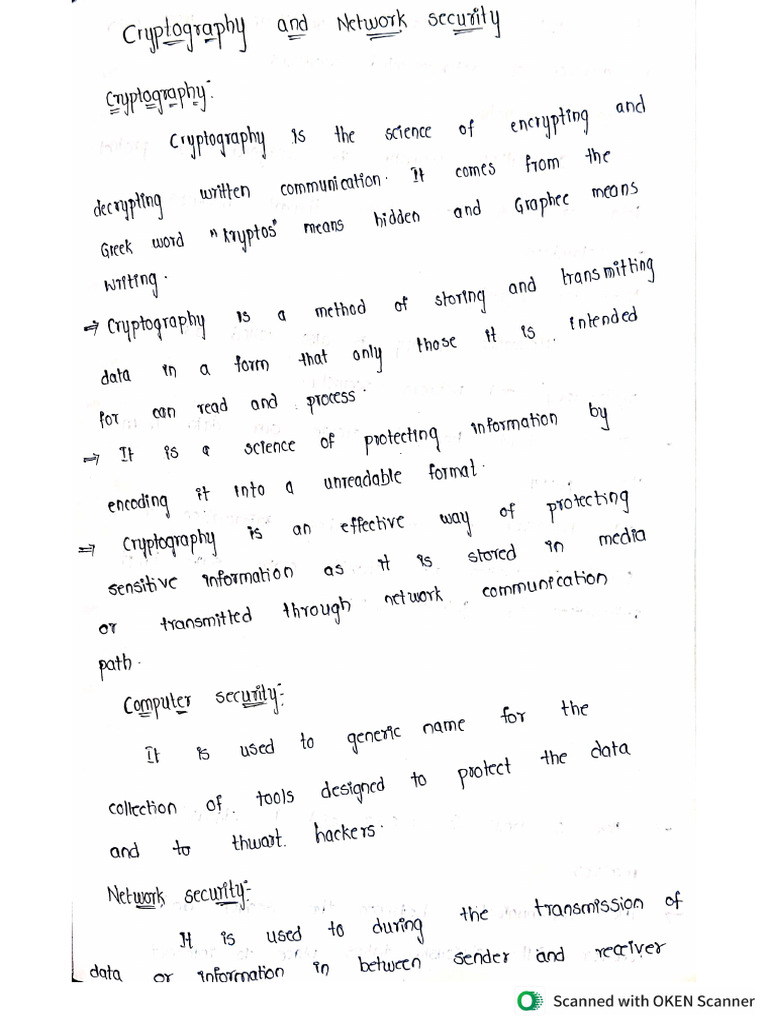 Cryptography and Network security
Cryptography:-
Cryptography is the science of encrypting and
decrypting written communication. It comes from the
Greek word "kryptos" means hidden and Graphee means
writing.
⇒ Cryptography is a method of storing and transmitting
data in a form that only those it is intended
for can read and process.
⇒ It is a science of protecting information by
encoding it into a unreadable format.
⇒ Cryptography is an effective way of protecting
sensitive information as it is stored in media
or transmitted through network communication
path.
Computer security:-
It is used to generic name for the
collection of tools designed to protect the data
and to thwart hackers.
Network security:-
It is used to during the transmission of
data or information in between sender and receiver
Scanned with OKEN Scanner